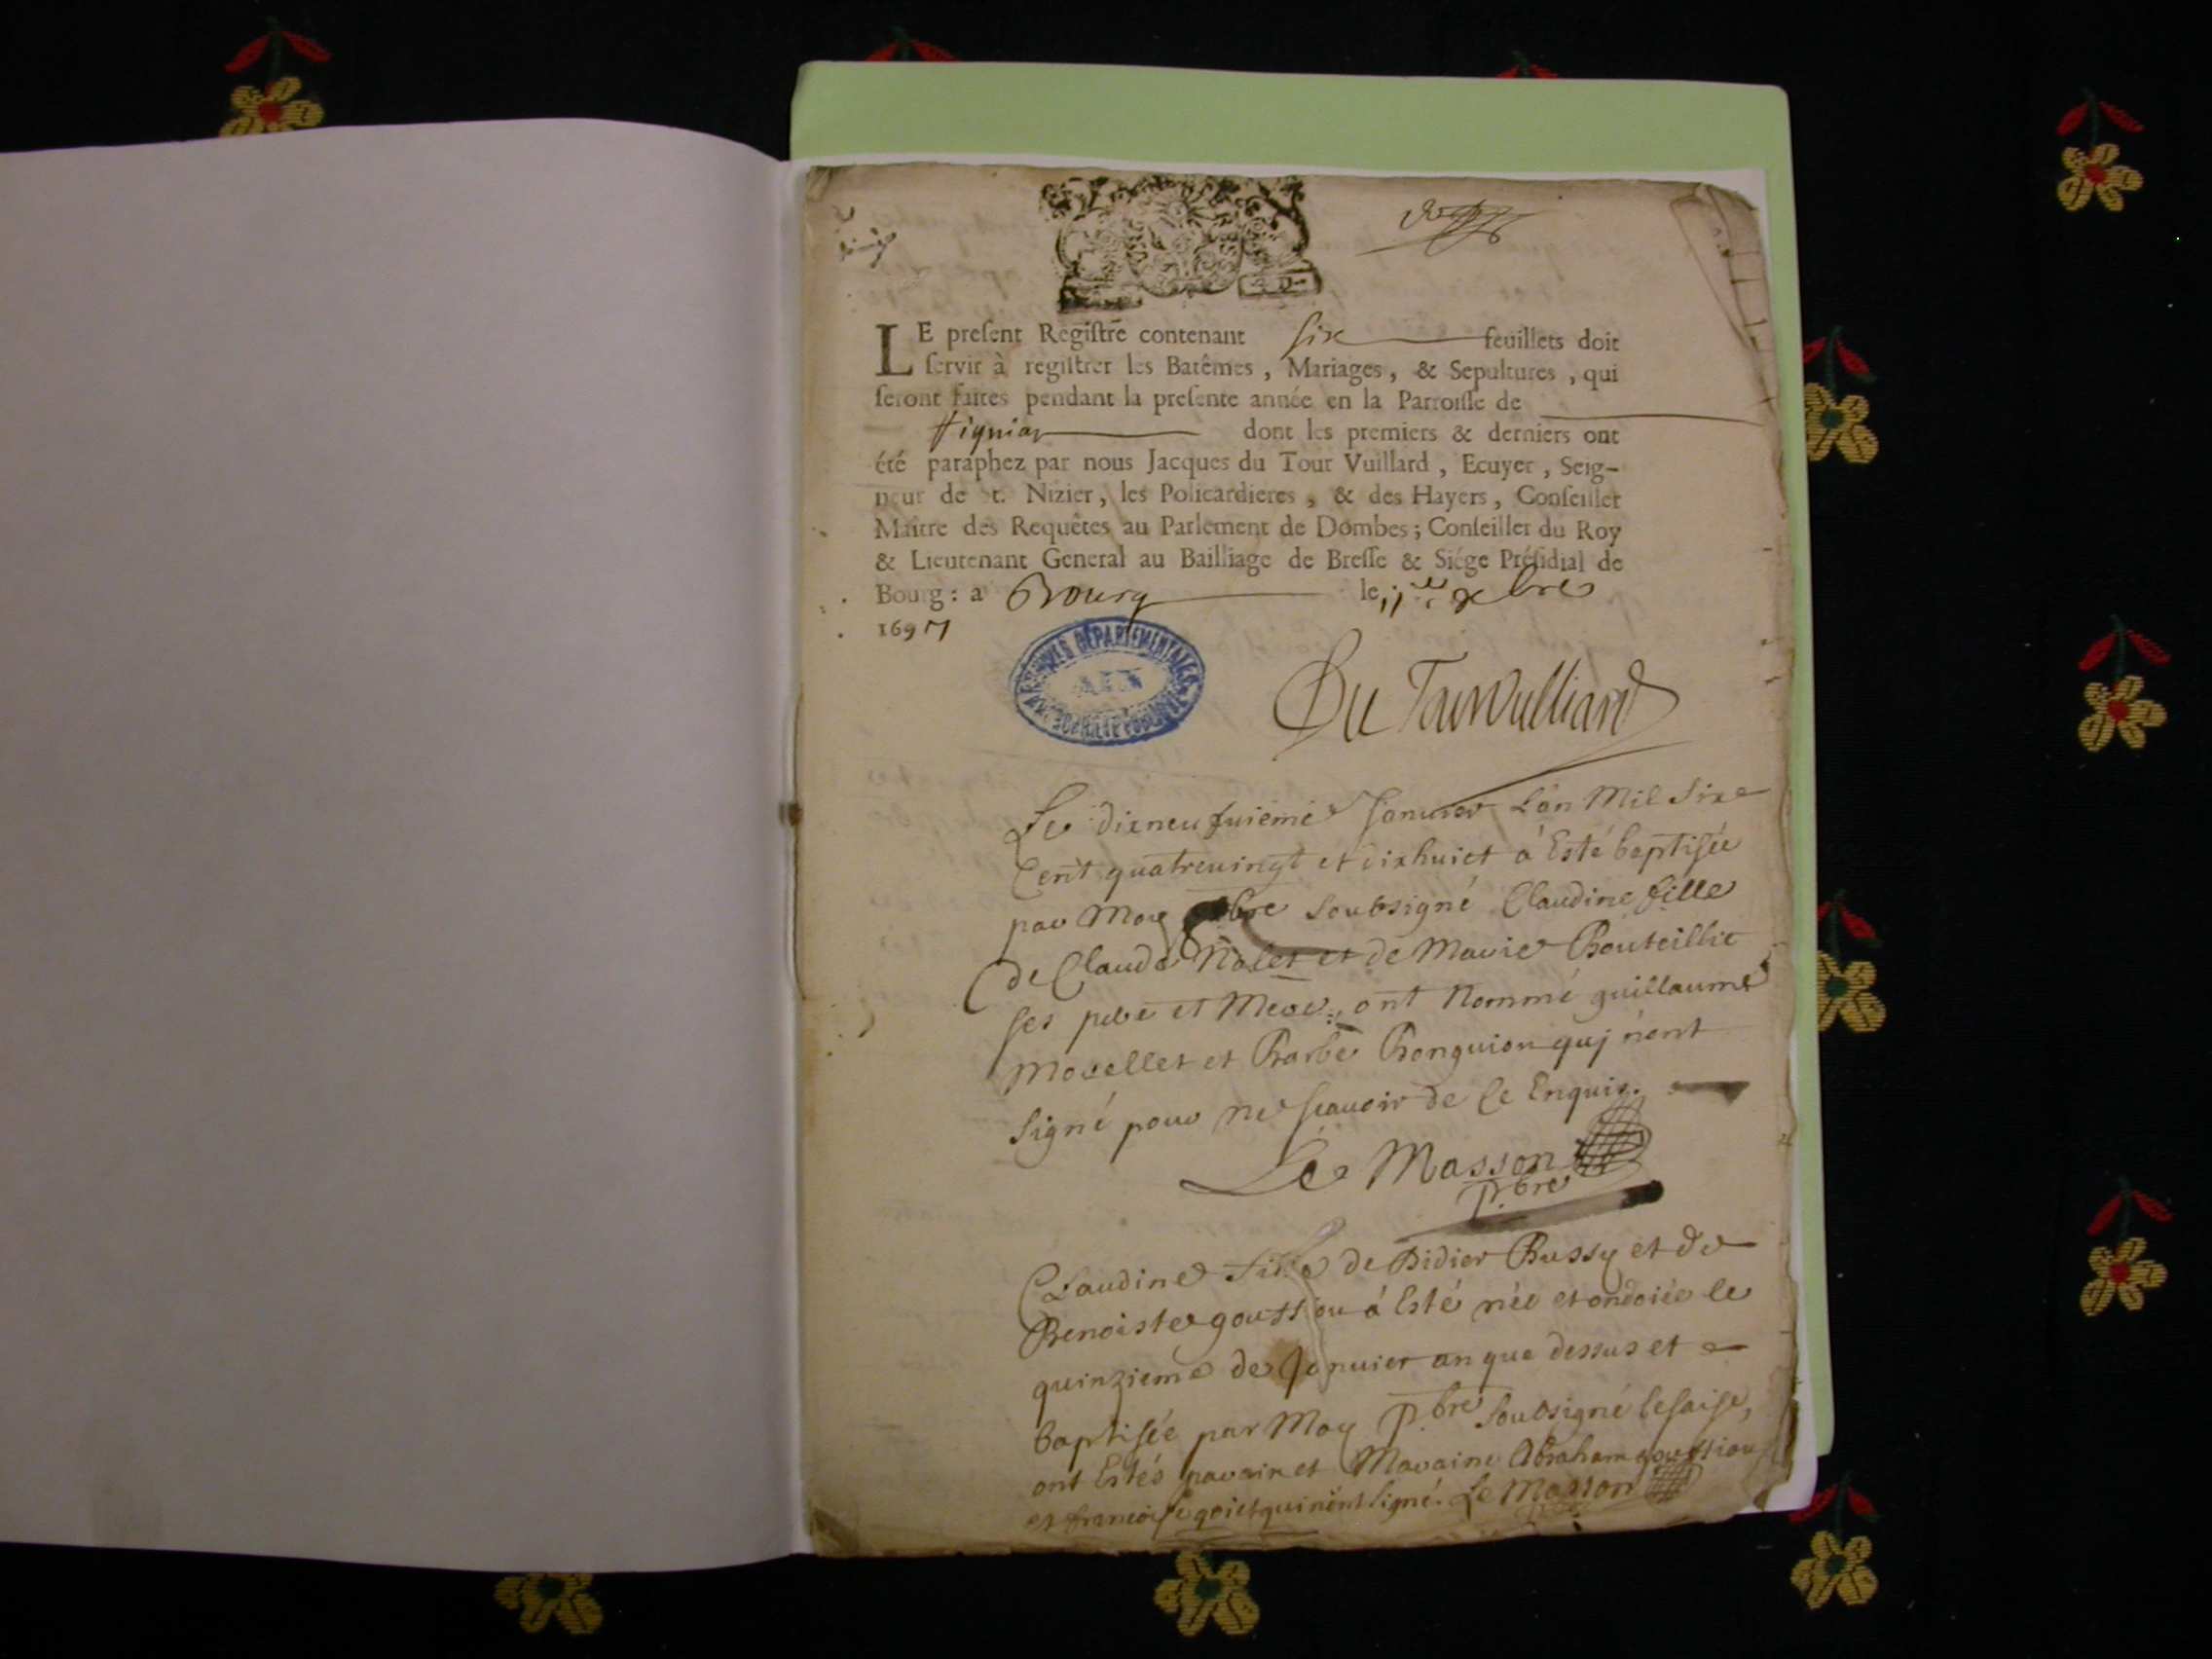 LE preſent Regiſtre contenant six feuillets doit
ſervir à regiſtrer les Batêmes, Mariages, & Sepultures, qui
ſeront faites pendant la preſente année en la Parroiſſe de
dont les premiers & derniers ont
été paraphez par nous Jacques du Tour Vuillard, Ecuyer, Seig-
neur de St. Nizier, les Policardieres, & des Hayers, Conſeiller
Maître des Requêtes au Parlement de Dombes; Conſeiller du Roy
& Lieutenant General au Bailliage de Breſſe & Siége Préſidial de
Bourg: a Bourg le xbre
1697
ARCHIVES DÉPARTEMENTALES
AIN
Du Tour Vulliard
Le dixneufuieme Januier L'an Mil Six
Cent quatreuingt et dixhuict à Esté baptisée
par Moy pbre Soubsigné Claudine fille
de Claude Nolet et de Marie Bouteillie
ses pere et Mere, ont Nommé guillaume
Morellet et Barbe Bonguion quj nont
Signé pour ne scauoir de ce Enquis.
Le Masson
P.bre
Claudine fille de Didier Bussy et de
Benoiste gouttiou á Esté née et ondoiée le
quinzieme de Januier an que dessus et
baptisée par Moy P.bre Soubsigné le
ont Estés parain et Maraine Abraham gouttiou
et francoise goiet qui nont Signé. Le Masson